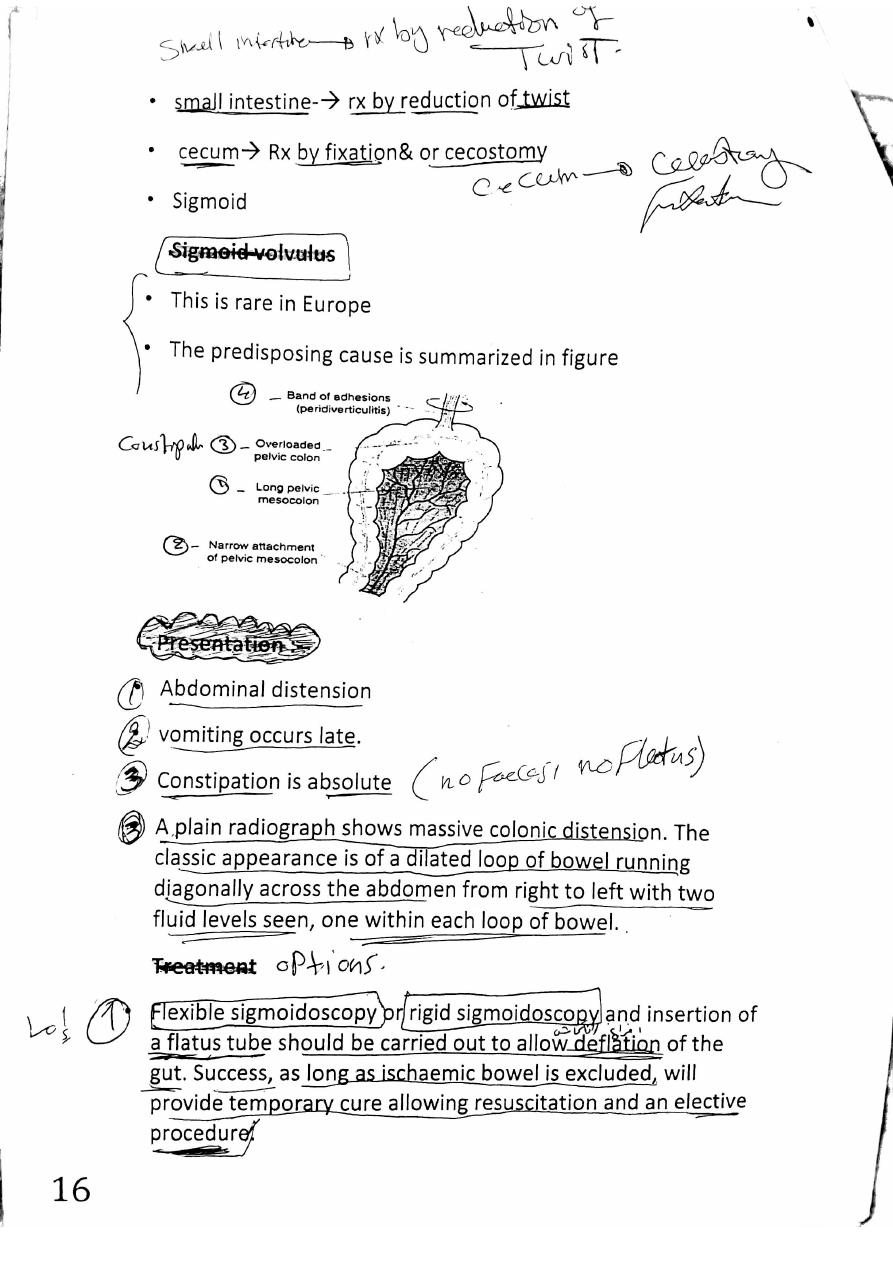 Small intestine → rx by reduction of
Twist.
• small intestine-→ rx by reduction of twist
• cecum→ Rx by fixation& or cecostomy
Cecum →
• Sigmoid
Sigmoid volvulus
• This is rare in Europe
• The predisposing cause is summarized in figure
④ – Band of adhesions
(peridiverticulitis)
③ – Overloaded
pelvic colon
① – Long pelvic
mesocolon
② – Narrow attachment
of pelvic mesocolon
Presentation :-
① Abdominal distension
② vomiting occurs late.
③ Constipation is absolute (no Faeces, no Flatus)
③ A plain radiograph shows massive colonic distension. The
classic appearance is of a dilated loop of bowel running
diagonally across the abdomen from right to left with two
fluid levels seen, one within each loop of bowel.
Treatment options.
① Flexible sigmoidoscopy or rigid sigmoidoscopy and insertion of
a flatus tube should be carried out to allow deflation of the
gut. Success, as long as ischaemic bowel is excluded, will
provide temporary cure allowing resuscitation and an elective
procedure.
16